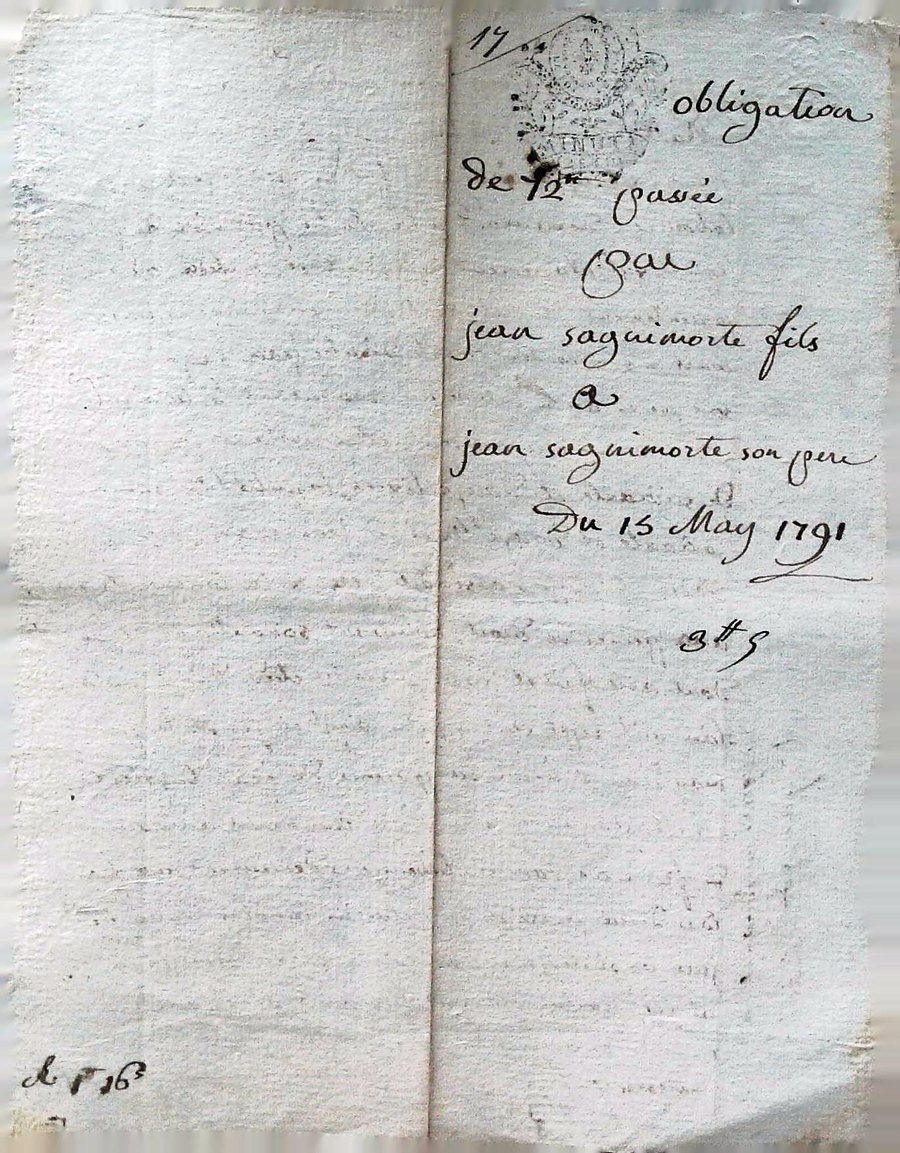 17
obligation
MINUTE
de 72# passée
par
jean saguimorte fils
a
jean saguimorte son pere
Du 15 May 1791
3# 5